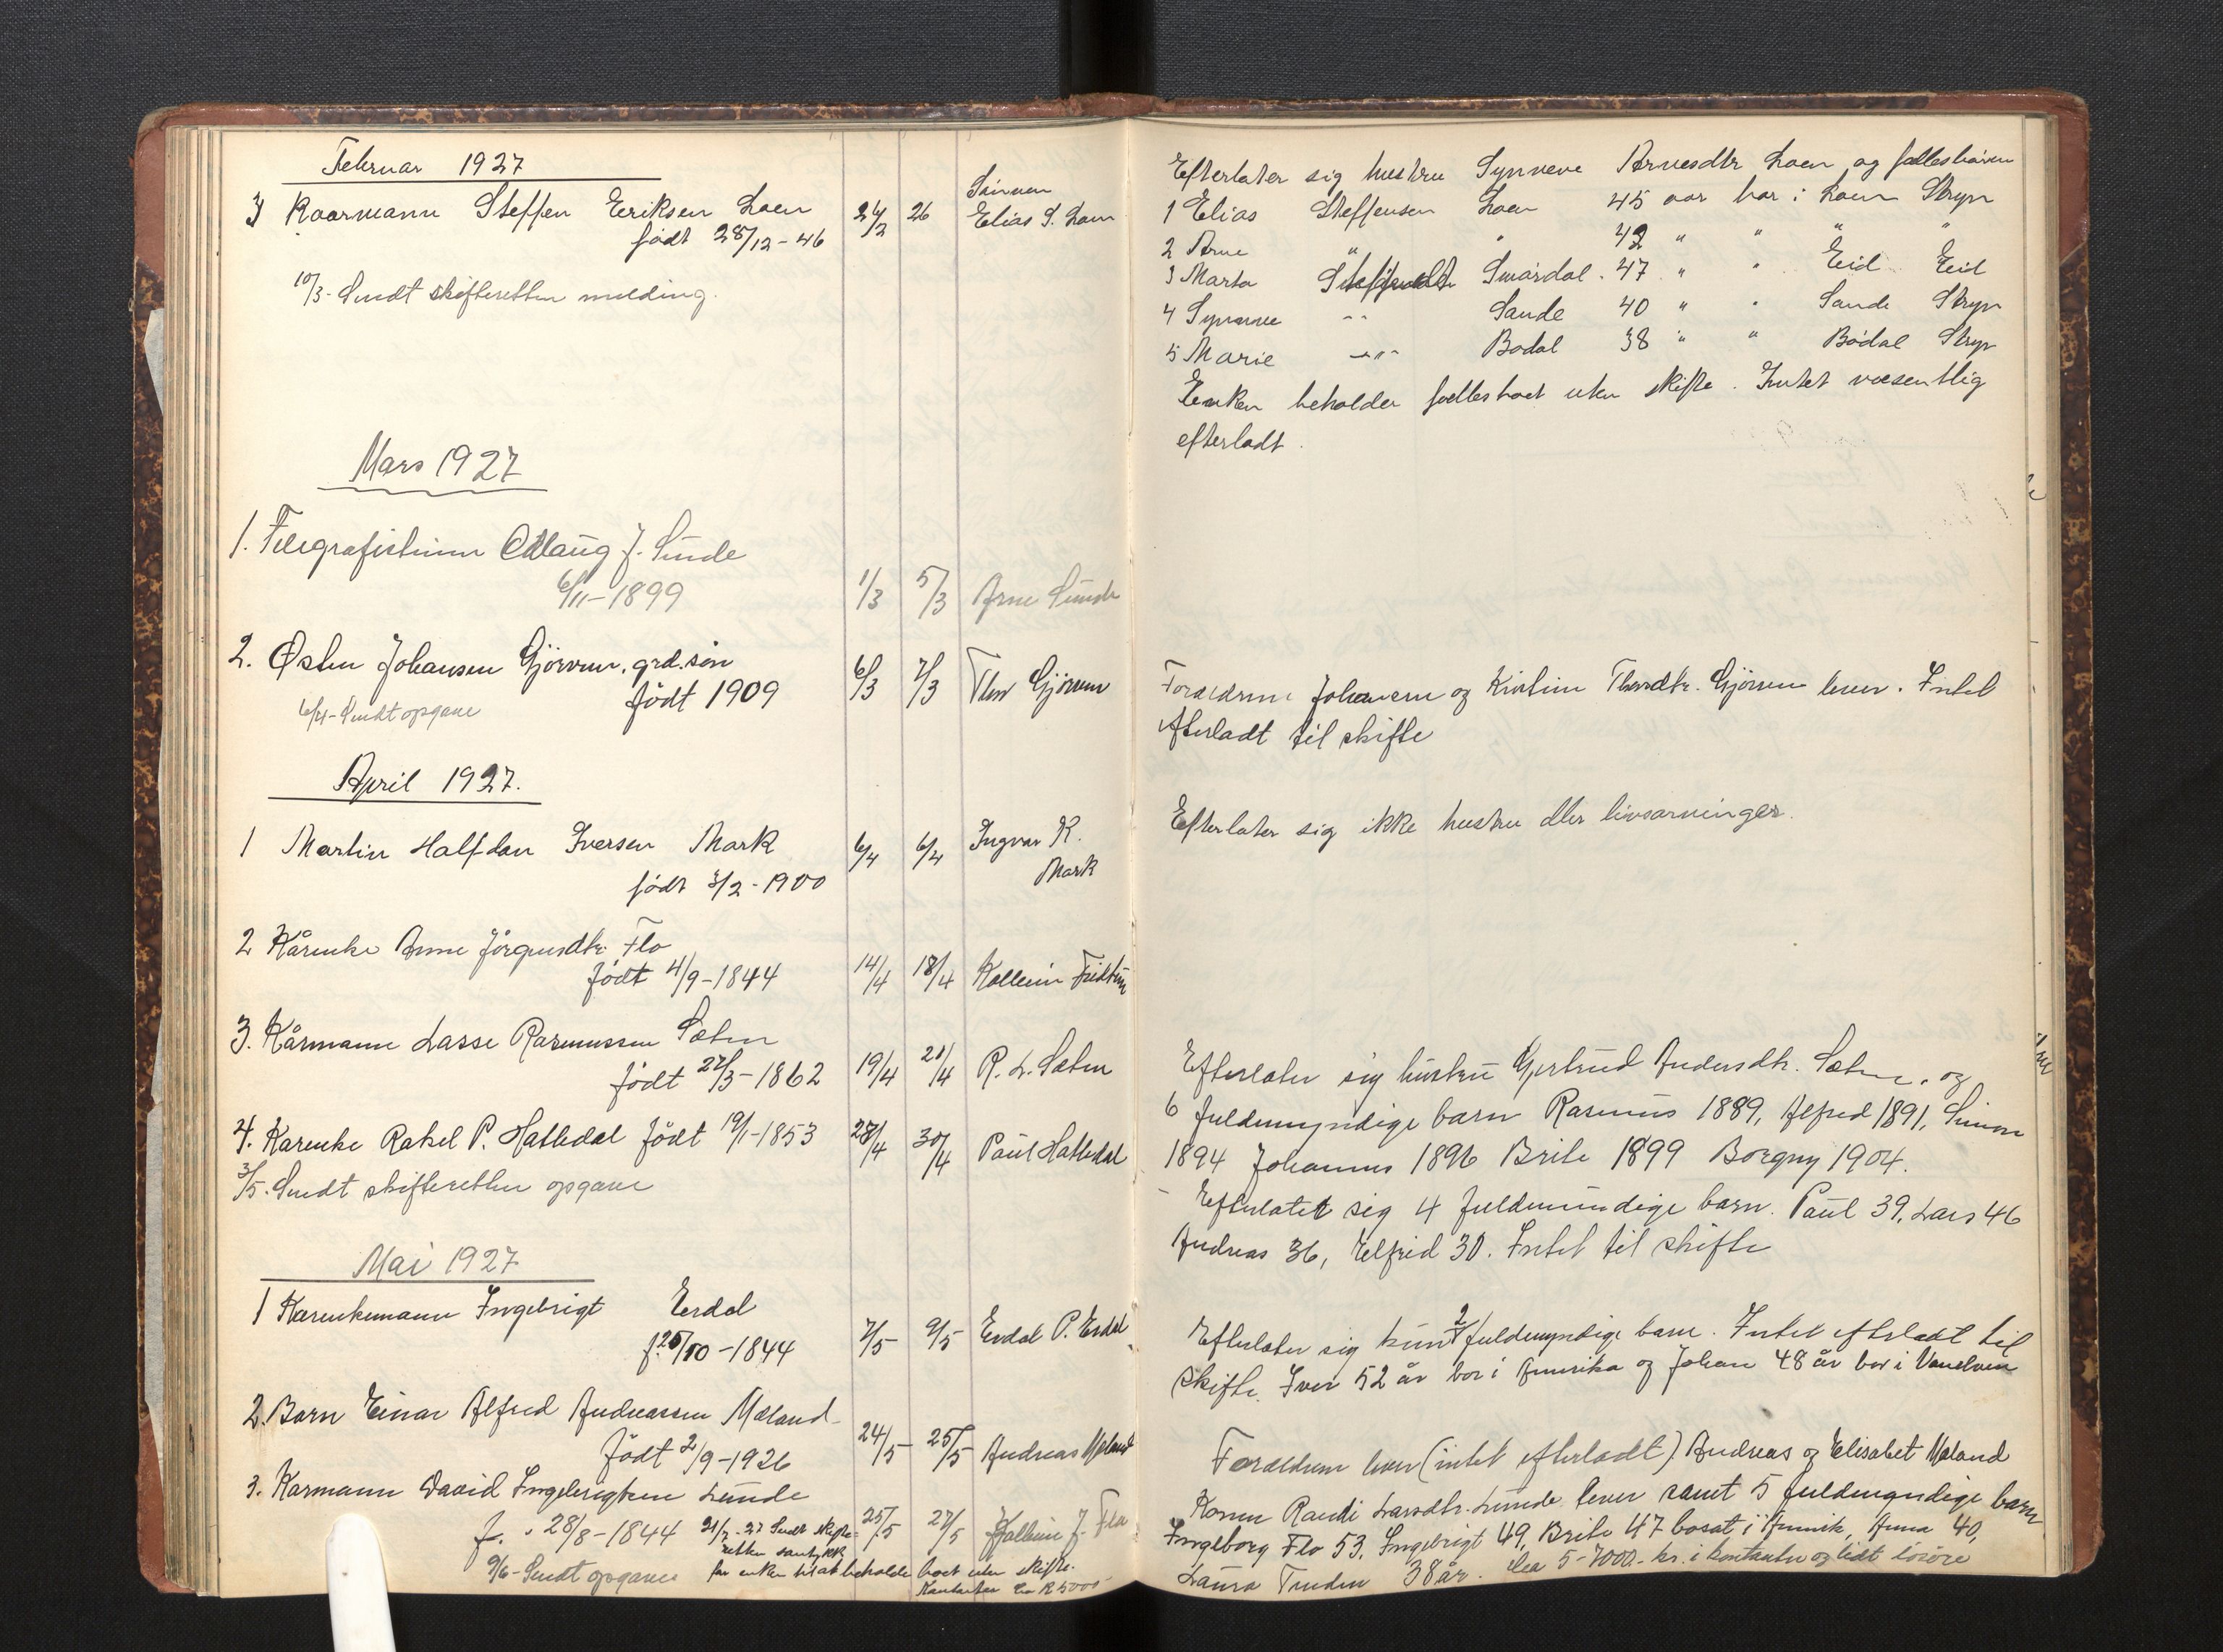 Februar 1927
3 Kaarmann Steffen Eriksen Loen 24/2 26 Sønnen
Elias S. Loen
født 28/12-46
10/3- Sendt skifteretten melding.
Mars 1927
1. Telegrafistinne Odlaug J. Sunde
6/11-1899 1/3 5/3 Arne Sunde
2. Østen Johansen Gjörven, grd.søn 6/3 7/3 Thor Gjörven
født 1909
6/4- Sendt opgave
April 1927.
1 Martin Halfdan Iversen Mark 6/4 6/4 Ingvar K.
Mark
født 3/2-1900
2 Kårenke Anne Jörgensdtr. Flo
født 4/9-1844 14/4 18/4
3. Kårmann Lasse Rasmussen Sæten
født 27/3-1862 19/4 21/4 R. L. Sæten
4. Kårenke Rakel P. Hattedal født 19/1-1853 28/4 30/4 Paul Hattedal
3/5. Sendt skifteretten opgave
Mai 1927
1 Karenkemann Ingebrigt Erdal
f. 26/10-1844 7/5 9/5 Erdal P. Erdal
2. Barn Einar Alfred Andreassen Mæland
født 2/9-1926 24/5 25/5 Andreas Mæland
3. Karmann David Ingebrigtsen Lunde
f. 28/8-1844 21/7-27 Sendt skifte- 25/5 27/5 J. Flo
retten samtykke
9/6- Sendt opgave for enken til at beholde boet uten skifte.
Kontanter ca Kr 5000
Efterlater sig hustru Synneve Arnesdtr Loen og fællesbarn
1 Elias Steffensen Loen 45 aar bor i Loen Stryn
2 Arne " " 42 " " " "
3 Marta Steffensdtr Smørdal. 47 " " Eid Eid
4 Synneve -"- Sande 40 " " Sande Stryn
5 Marie -"- Bødal 38 " " Bødal Stryn
Enken beholder fællesboet uten skifte. Intet væsentlig
efterladt.
Forældrene Johannes og Kristine Thordtr. Gjörven lever. Intet
efterladt til skifte
Efterlater sig ikke hustru eller livsarvinger.
Efterlater sig hustru Gjertrud Andersdtr. Sæten, og
6 fuldemyndige barn Rasmus 1889, Alfred 1891, Simon
1894 Johannes 1896 Brite 1899 Borgny 1904.
- Efterlatet sig 4 fuldemündige barn. Paul 39, Lars 46
Andreas 36, Elfrid 30. Intet til skifte
Efterlater sig kun 2 fuldemyndige barn. Intet efterladt til
skifte. Iver 52 år bor i Amerika og Johan 48 år bor i Vanelven
Forældrene lever (intet efterladt). Andreas og Elisabet Mæland
Konen Randi Larsdtr. Lunde lever samt 5 fuldmyndige barn
Ingeborg Flo 53, Ingebrigt 49, Brite 47 bosat i Amerik, Anna 40,
Laura Tenden 38 år. Ca 5-7000.- kr. i kontanter og lidt løsøre